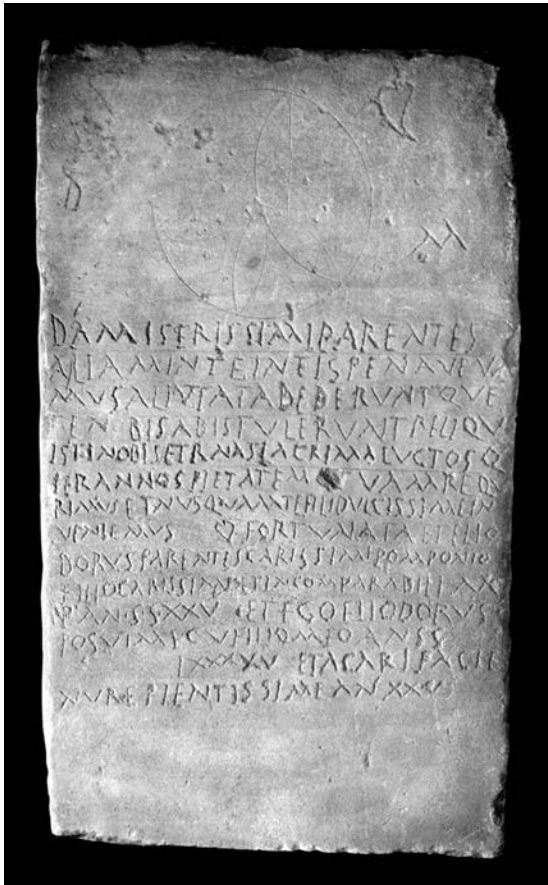 D
M
DAMISERISSIMIPARENTES
ALIAMINTEINTISPENAVEVA
MVSALIVTATADEDERVNTQVE
TENOBISABISTVLERVNTRELIQV
ISTINOBISETRNASLACRIMALVCTOSQ
PERANNOSPIETATEM TVAMREQV
RIMVSETNVSQVAMTEFILIDVLCISSIMEIN
VENIEMVS FORTVNATAETELIO
DORVSPARENTESCARISSIMIPOMPONIO
FILIOCARISSIMOETINCOMPARABILI
AN SSXXV ETEGOELIODORVS
POSVIMSCVFILIOMEOANSS
LXXXXV ETACARIS
PIENTISSIMEANXXV